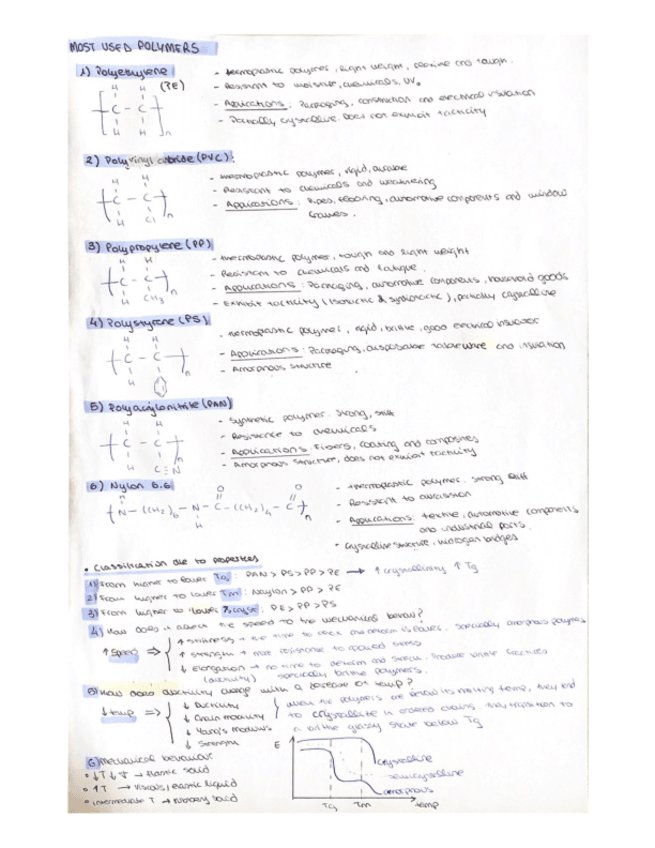 MOST USED POLYMERS
1) Polyethylene (PE)
- thermoplastic polymer, light weight, flexible and tough.
- Resistant to moisture, chemicals, UV.
- Applications: Packaging, construction and electrical insulation
- Partially crystalline. Does not exhibit tacticity
H H
C - C
H H n
2) Polyvinyl chloride (PVC):
- thermoplastic polymer, rigid, durable
- Resistant to chemicals and weathering
- Applications: Pipes, flooring, automotive components and window
frames.
H H
C - C
H Cl n
3) Polypropylene (PP)
- thermoplastic polymer, tough and light weight
- Resistant to chemicals and fatigue.
- Applications: Packaging, automotive components, household goods
- Exhibit tacticity (Isotactic & syndiotactic), partially crystalline
H H
C - C
H CH3 n
4) Polystyrene (PS)
- thermoplastic polymer, rigid, brittle, good electrical insulator
- Applications: Packaging, disposable tableware and insulation
- Amorphous structure
H H
C - C
H n
5) Polyacrylonitrile (PAN)
- Synthetic polymer. Strong, stiff
- Resistance to chemicals
- Applications: Fibers, coating and composites
- Amorphous structure, does not exhibit tacticity
H H
C - C
H C≡N n
6) Nylon 6.6
- thermoplastic polymer. strong stiff
- Resistant to abrasion
- Applications: textile, automotive components
and industrial parts.
- Crystalline structure, hidrogen bridges
O O
N - (CH2)6 - N - C - (CH2)4 - C n
H H
• Classification due to properties
1) From higher to lower Tg: PAN > PS > PP > PE → ↑ crystallinity ↑ Tg
2) From higher to lower Tm: Naylon > PP > PE
3) From higher to lower % cryst: PE > PP > PS
4) How does it affect the speed to the mechanical behav?
↑ Speed ⇒
↑ stiffness → less time to and is lower. Specially amorphous polymers
↑ strength → more resistance to applied stress
↓ Elongation → no time to deform and stretch. Produce brittle fractures
(ductility) specially brittle polymers.
5) How does ductility change with a decrease of temp?
↓ temp ⇒
↓ Ductility
↓ Chain mobility
↓ Young's modulus
↓ Strength
When the polymers are below its melting temp, they tend
to crystallize in ordered chains. they transition to
a brittle glassy state below Tg
6) Mechanical behaviour
• ↓T → Elastic solid
• ↑T → Viscous/elastic liquid
• Intermediate T → rubbery solid
E
crystalline
semicrystalline
amorphous
Tg Tm temp